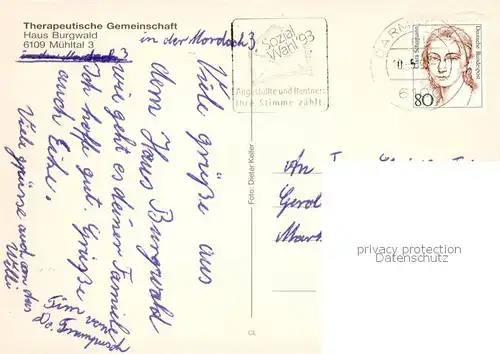 Therapeutische Gemeinschaft
Haus Burgwald
6109 Mühltal 3
in der Mordach 3
in der Mordach 3
Viele grüße aus
dem Haus Burgwald
wie geht es deiner Familie
Ich hoffe gut. Grüße
auch Eike.
Viele grüsse auch an das
Willi
Tim von
Do.
Sozial
Wahl '93
Angestellte und Rentner:
Ihre Stimme zählt.
DARM
10.-5.
610
Clara Schumann
Deutsche Bundespost
80
Foto: Dieter Keller
CL
An
Gerol
Mart
privacy protection
Datenschutz